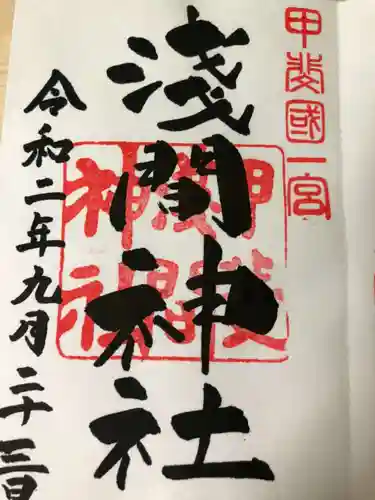 甲斐國一宮
淺間神社
甲斐
淺間
神社
令和二年九月二十三日